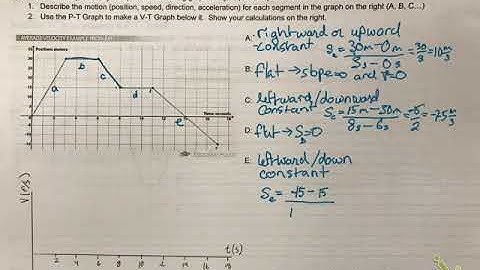 1. Describe the motion (position, speed, direction, acceleration) for each segment in the graph on the right (A, B, C...)
2. Use the P-T Graph to make a V-T Graph below it. Show your calculations on the right.
AVERAGE VELOCITY EXAMPLE PROBLEM
Position- meters
a
b
c
d
e
Time- seconds
A. rightward or upward
constant Sₐ = 30m-0m / 3s-0s = 30/3 = 10 m/s
B. flat → slope=0 and v=0
C. leftward/downward
constant S꜀ = 15m-30m / 8s-6s = -15/2 = -7.5 m/s
D. flat → S_D=0
E. leftward/down
constant
Sₑ = -15-15
V(m/s)
2 4 6 8 10 12 14 16 18
t(s)